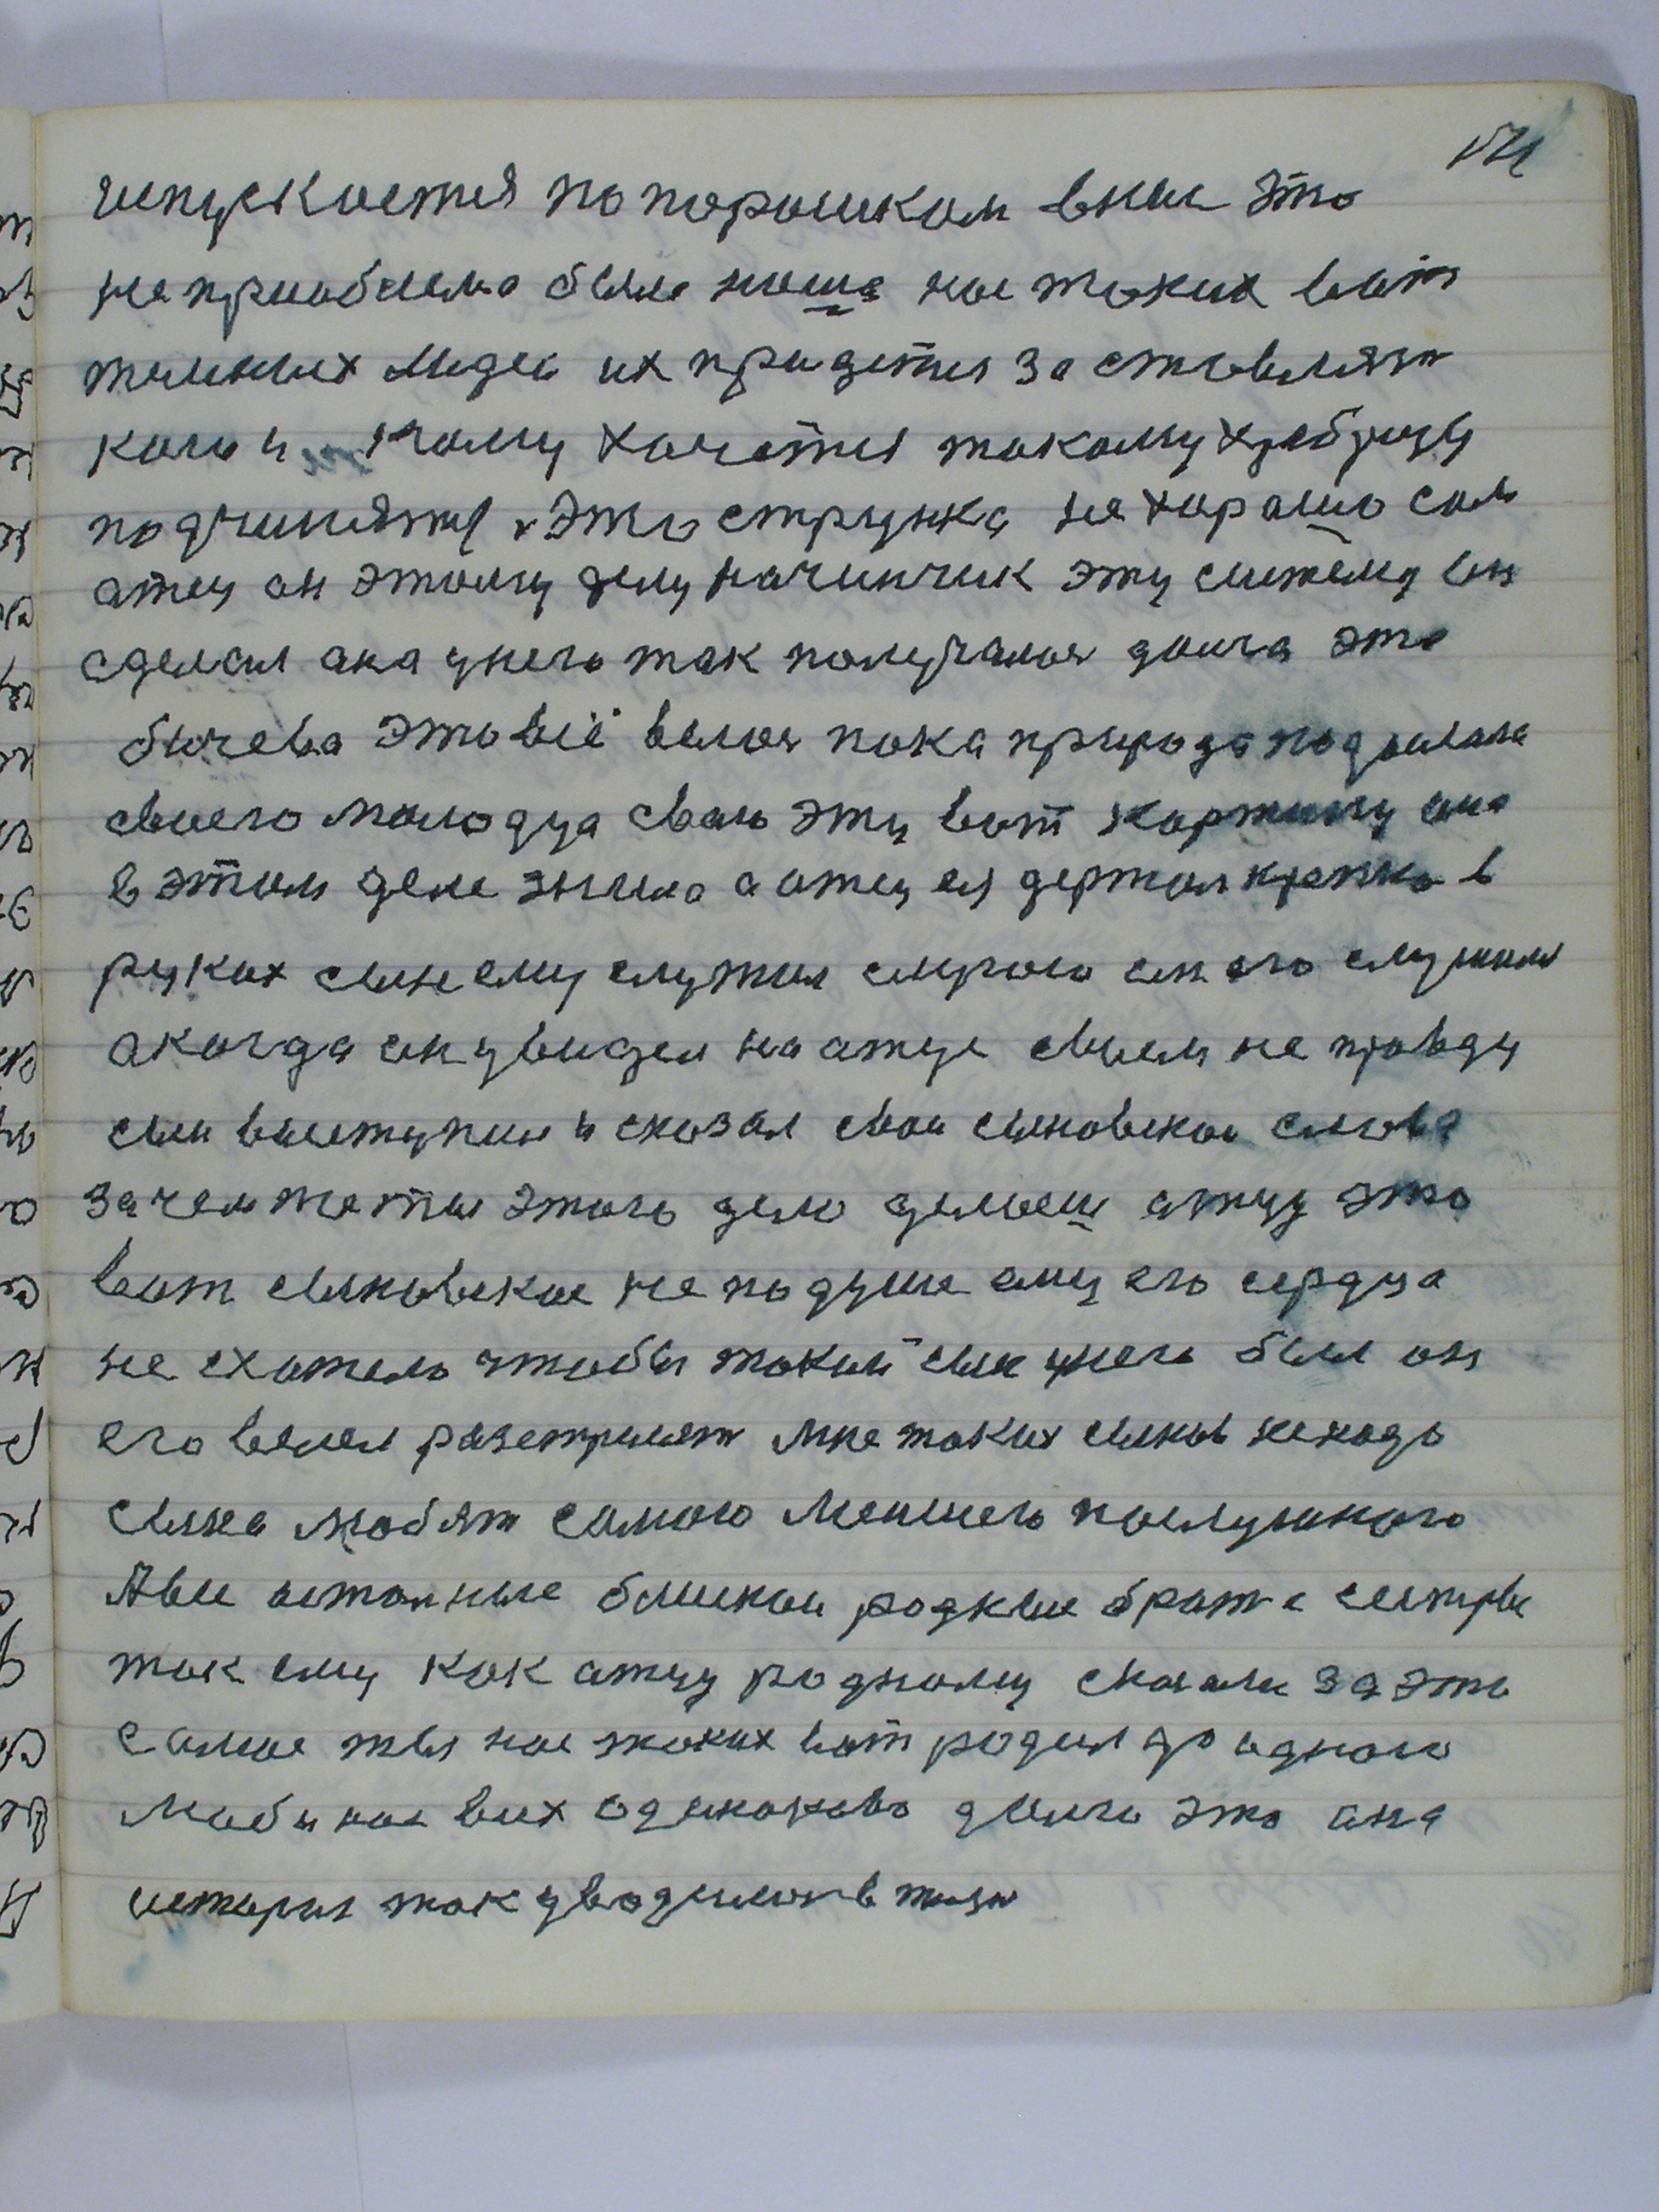 испускается по порошкам вниз это
не приобнемо было наша нас таких вот
темных людей их придется заставлять
кого и кому хочется такому храбрецу
подчинятся это струнка не хорошо сам
атец он этому делу начинчик эту систему он
сделал ана унего так получалоя долга это
бичева это всё велося пока природа подаслала
своего молодца сваю эту вот картину она
в этом деле знала а атец ея держал крепко в
руках сын ему служил строго он его слушал
акогда он увидел на атце своем не правду
сын выступил и сказал свои сыновскои слова
зачем же ты этого дело делаеш атцу это
вот сыновское не по душе ему его сердца
не схотело чтобы такий сын унего был он
его велел разстрелят мне таких сынов ненадо
сына любят самого меншего послушного
А вы астальные близкаи родные братя сестры
так ему как атцу родному сказали за это
самое ты нас таких вот родил до одного
люби нас всех одинаково долго это она
история так уводилося в жизни